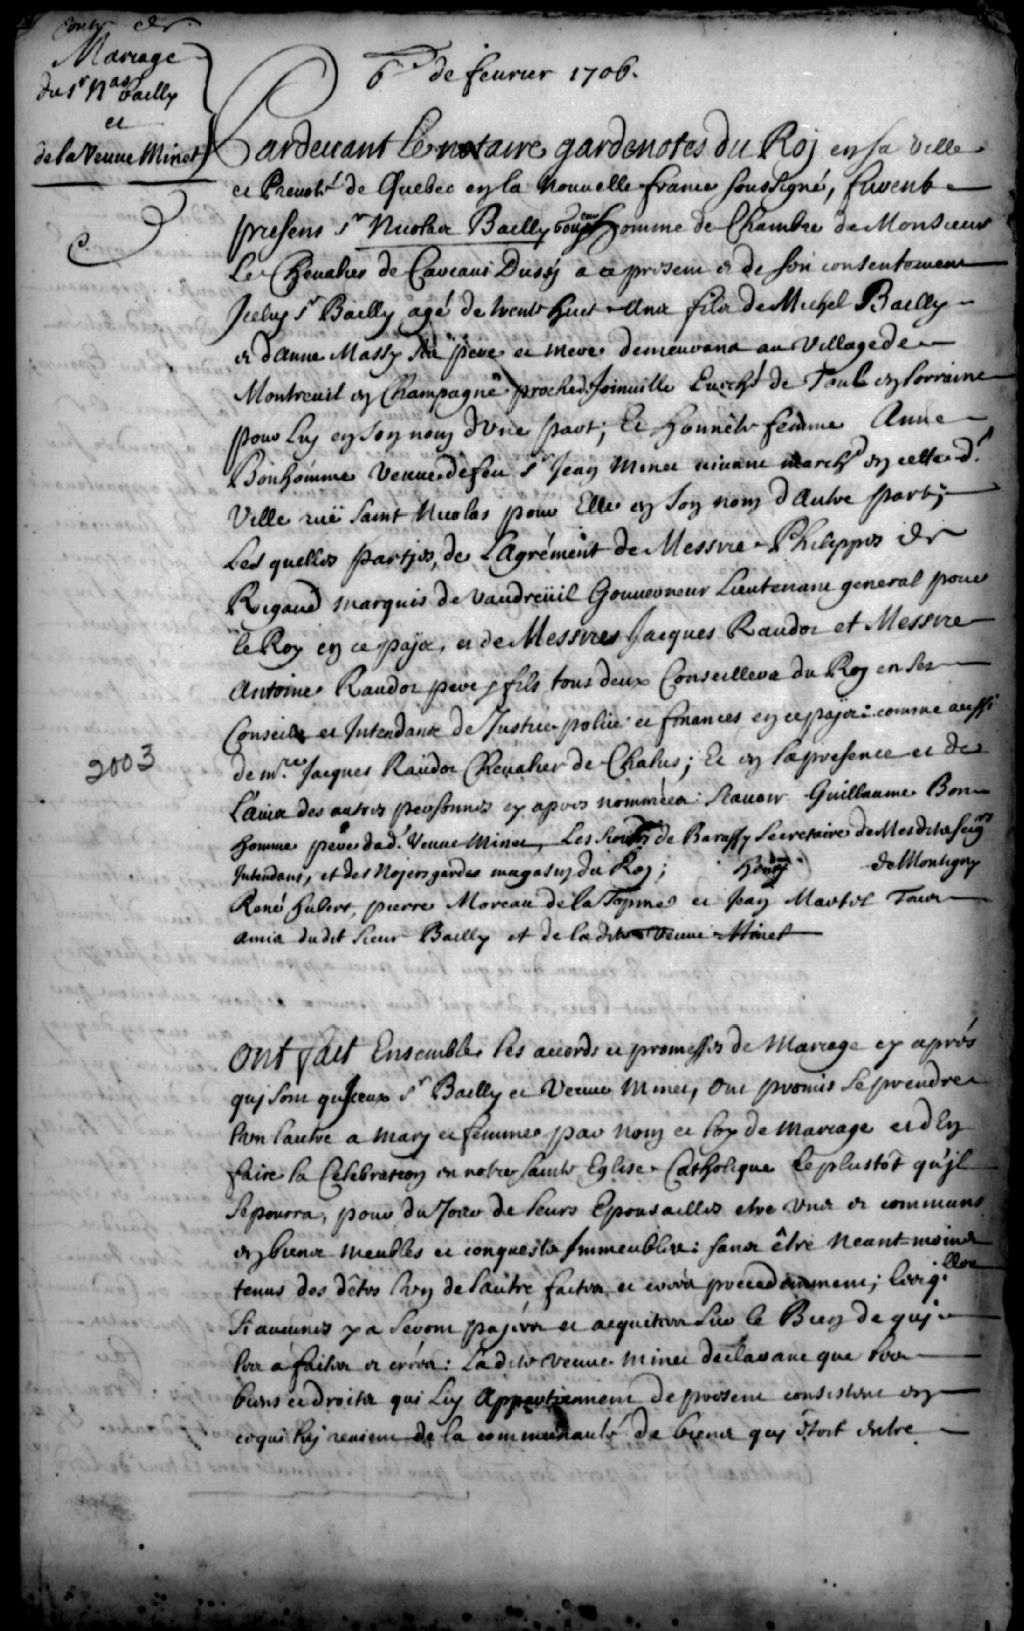 Contr de
Mariage
du Sr Nas Bailly
et
de la Veuve Minet
6e de feurier 1706.
Pardeuant Le notaire gardenotes du Roj en sa Ville
et Preuoté de Quebec en la Nouuelle france soussigné, furent
presens Sr Nicolas Bailly homme de Chambre de Monsieur
Le Cheualier de Dussy a ce present et de son consentement
Iceluy Sr Bailly agé de trente huit Ans fils de Michel Bailly
et d'Anne Massy ses pere et mere demeurans au Village de
Montreuil en Champagne proche de Joinuille Euêché de Toul en lorraine
pour Luy en son nom d'Vne part; Et honnête femme Anne
Bonhomme Veuue de feu Sr Jean Minet viuant march en cette d.
Ville ruë Saint Nicolas pour Elle en son nom d'Autre part;
Les quelles partjes, de L'Agrément de Messire Philippes de
Rigaud Marquis de Vaudreüil Gouuerneur Lieutenant general pour
le Roy en ce païs, et de Messires Jacques Raudot et Messire
Antoine Raudot pere & fils tous deux Conseillers du Roy en ses
Conseils et Intendans de Justice police et finances en ce païs: comme aussi
de mre Jacques Raüdot Cheualier de Chalus; Et en la presence et de
L'auis des autres personnes cy apres nommées: Scauoir Guillaume Bon
homme pere de lad. Veuue Minet, Les Sieurs de Barassy Secretaire de Mesdits Seigrs
Intendans, et des Nojers gardes magasin du Roj; de Montigny
René hubert, pierre Moreau de la Topine et Jean Martel Tous
amis dudit Sieur Bailly et de la dite Veuue Minet
2003
Ont fait Ensemble les accords et promesses de Mariage cy aprés
quj sont qu'Iceux Sr Bailly et Veuue Minet, Ont promis se prendre
L'vn L'autre a Mary et femme par Nom et loy de Mariage et d'En
faire la Celebration en notre sainte Eglise Catholique le plustôt qu'jl
se pourra, pour du Jour de leurs Epousailles etre Vns et communs
en biens Meubles et conquests Immeubles: sans être Neant-moins
tenus des dêtes L'vn de L'autre faites et créés precedemment; Lesqlles
Si aucunes y a Seront pajées et acquitées Sur le Bien de quj
les a faites et créés: Ladite veuue Minet declarant que ses
biens et droits qui Luy Appartiennent de present consistent en
ce qui luj reuient de la communauté de biens quj étoit entre